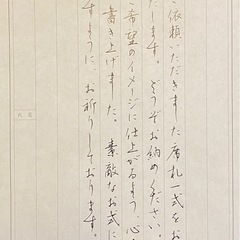 ご依頼いただきました席札一式をお
します。どうぞお納めください。
ご希望のイメージに仕上がるよう、心
書き上げました。素敵なお式に
すように、お祈りしております。
氏名